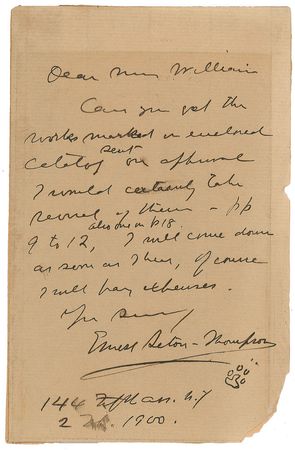 Dear Miss William
Can you get the
works marked in enclosed
sent
catalog on approval
I would certainly take
several of them – pp
also one on p 18.
9 to 12, I will come down
as soon as I hear, of course
I will pay expenses.
Yrs
Ernest Seton-Thompson
144 Fifth Av. N.Y
2 1900.